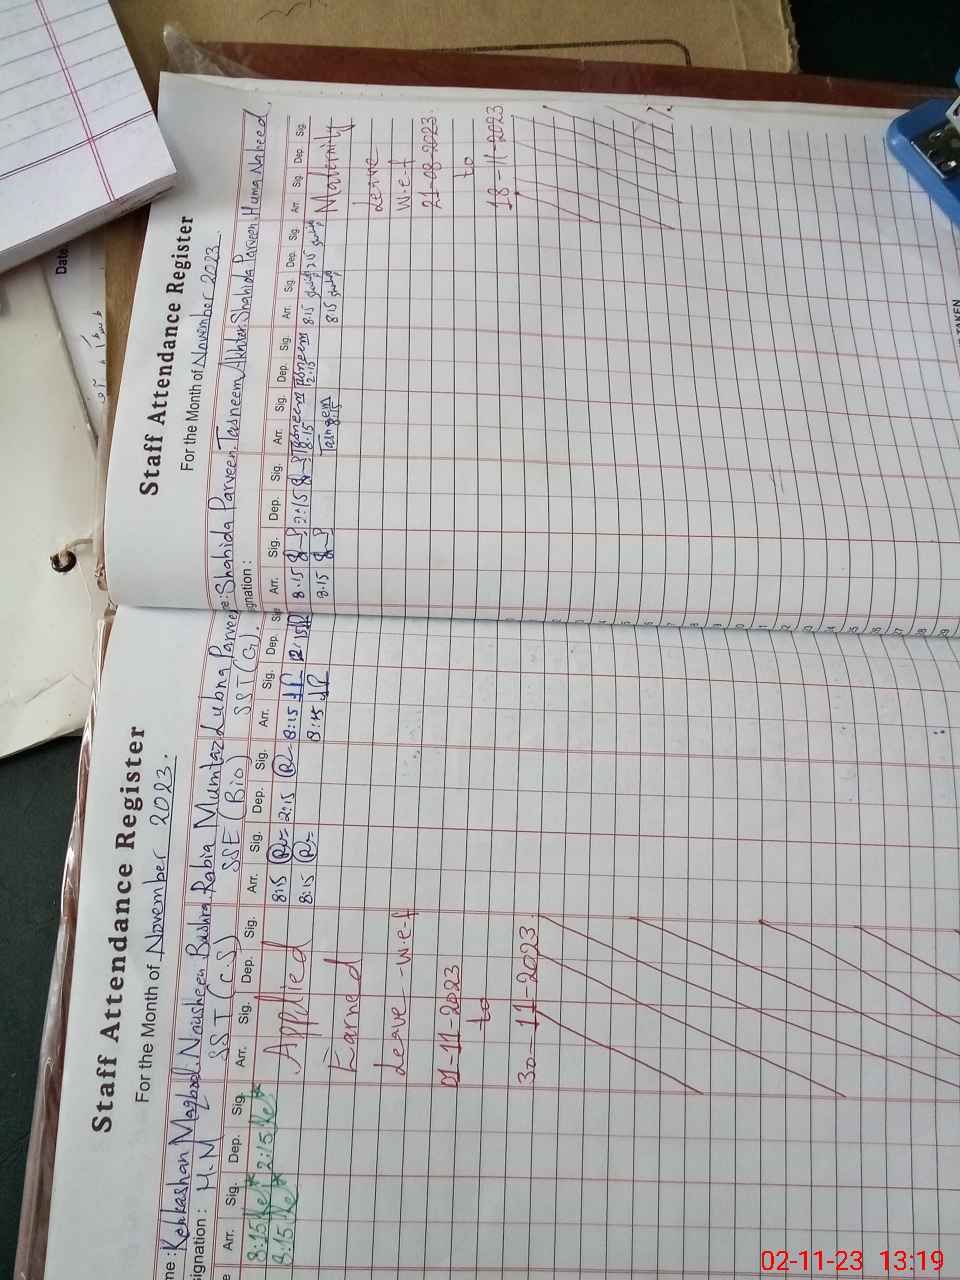 Staff Attendance Register
For the Month of November 2023.
me: Kehkashan Maqbool Nousheen Bushra Rabia Mumtaz Lubna Parveen
signation: H.M SST (C.S) SSE (Bio) SST (G).
e Arr. Sig. Dep. Sig. Arr. Sig. Dep. Sig. Arr. Sig. Dep. Sig. Arr. Sig. Dep. Sig
8:15 2:15 Applied 8:15 2:15 8:15 12:15
8:15 8:15 8:15
Earned
Leave - w.e.f
01-11-2023
to
30-11-2023.
Staff Attendance Register
For the Month of November 2023
e: Shahida Parveen Tasneem Akhter Shahida Parveen Huma Naheed
signation:
Arr. Sig. Dep. Sig. Arr. Sig. Dep. Sig. Arr. Sig. Dep. Sig. Arr. Sig. Dep Sig.
8.15 2:15 Tasneem 8:15 Tasneem 12:15 8:15 2:15 Maternity
8.15 Tasneem 8:15 8:15
Leave
w.e.f
21-08-2023
to
18-11-2023
TAKEN
Date
02-11-23 13:19